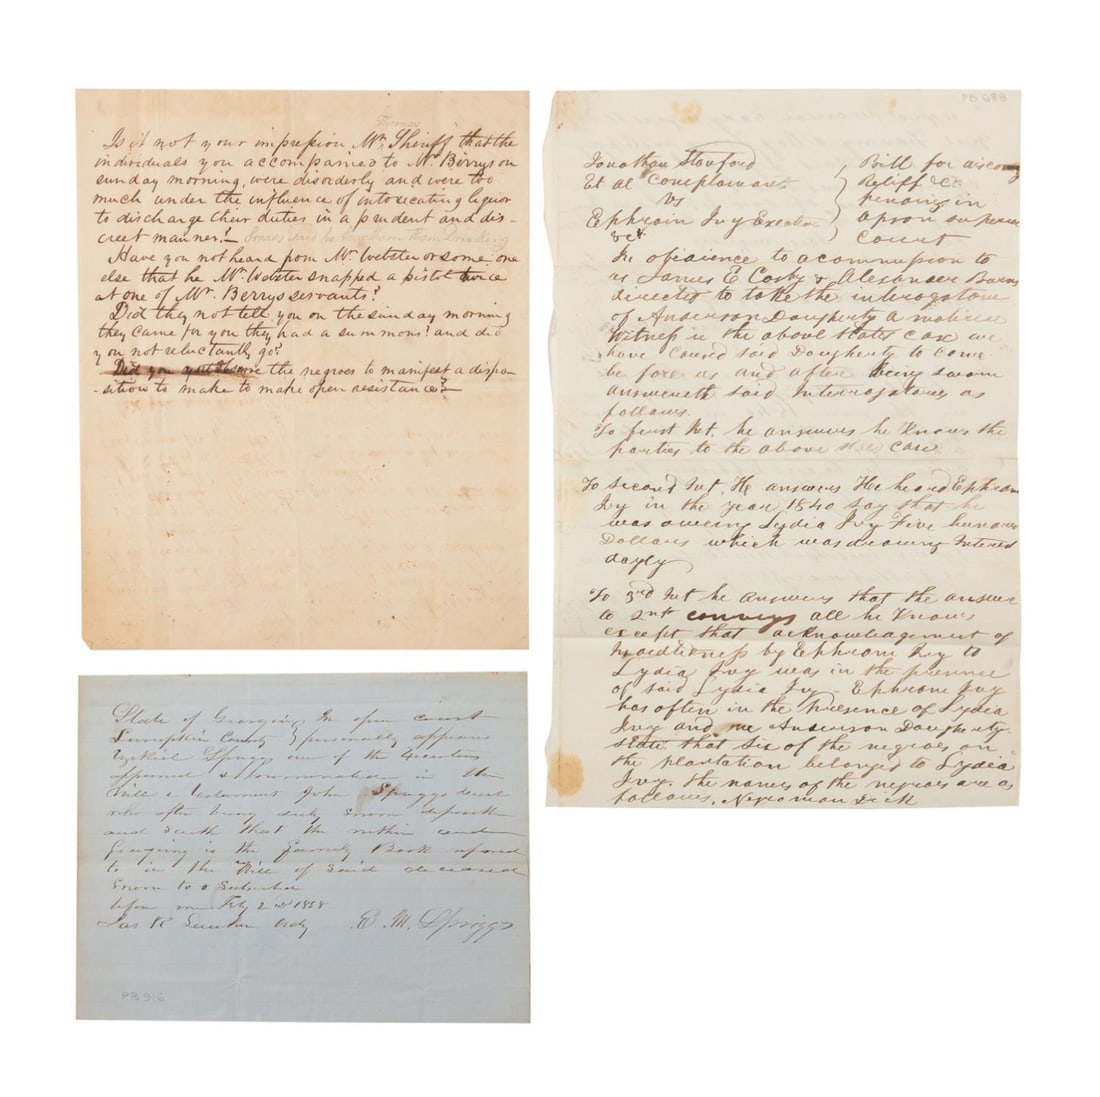 Thomas
Is it not your impression Mr. Sheriff that the
individuals you accompanied to Mr Berrys on
sunday morning, were disorderly and were too
much under the influence of intosecating liquor
to discharge their duties in a prudent and dis-
creet manner?
Have you not heard from Mr. Webster or some one
else that he Mr. Webster snapped a pistol twice
at one of Mr. Berrys servants?
Did they not tell you on the sunday morning
they came for you they had a summons? and did
you not reluctantly go?
Did you the negroes to manifest a dispo-
-sition to make to make open resistance?
State of Georgia In open court
Lumpkin County } personally appeared
Ezekiel Spriggs one of the Executors
in the
Will & Testament John Spriggs decd
who after being duly sworn deposeth
and saith that the within and
foregoing is the Family Book
to in the Will of said deceased
Sworn to &
before me Feby 2nd 1858
Jas R Ordy E. M. Spriggs
PB 916
PB 688
Jonathan Stanford
Et al Complainants
vs
Ephraim Ivy
Bill for discovery
Reliff &c
pending in
Court
In obedience to a commission to
us James E Cosby & Alexander Burns
directed to take the interogatore
of Anderson Daugherty a matirial
Witness in the above States Case we
have caused said Daugherty to come
be fore us and after being sworn
answereth said Interrogatories as
follows.
To first Int, he answers he Knows the
parties to the above case
To second Int, He answers He heard Ephram
Ivy in the year 1840 say that he
was owing Lydia Ivy Five hundred
Dollars which was drawing Interest
To 3rd Int he answers that the answer
to 2nd conveys all he Knows
except that acknowleagement of
by Ephram Ivy to
Lydia Ivy was in the presence
of said Lydia Ivy - Ephram Ivy
has often in the Presence of Lydia
Ivy and me Anderson Daugherty
state that six of the negroes on
the plantation belonged to Lydia
Ivy. the names of the negroes are as
follows, Negro man Dick